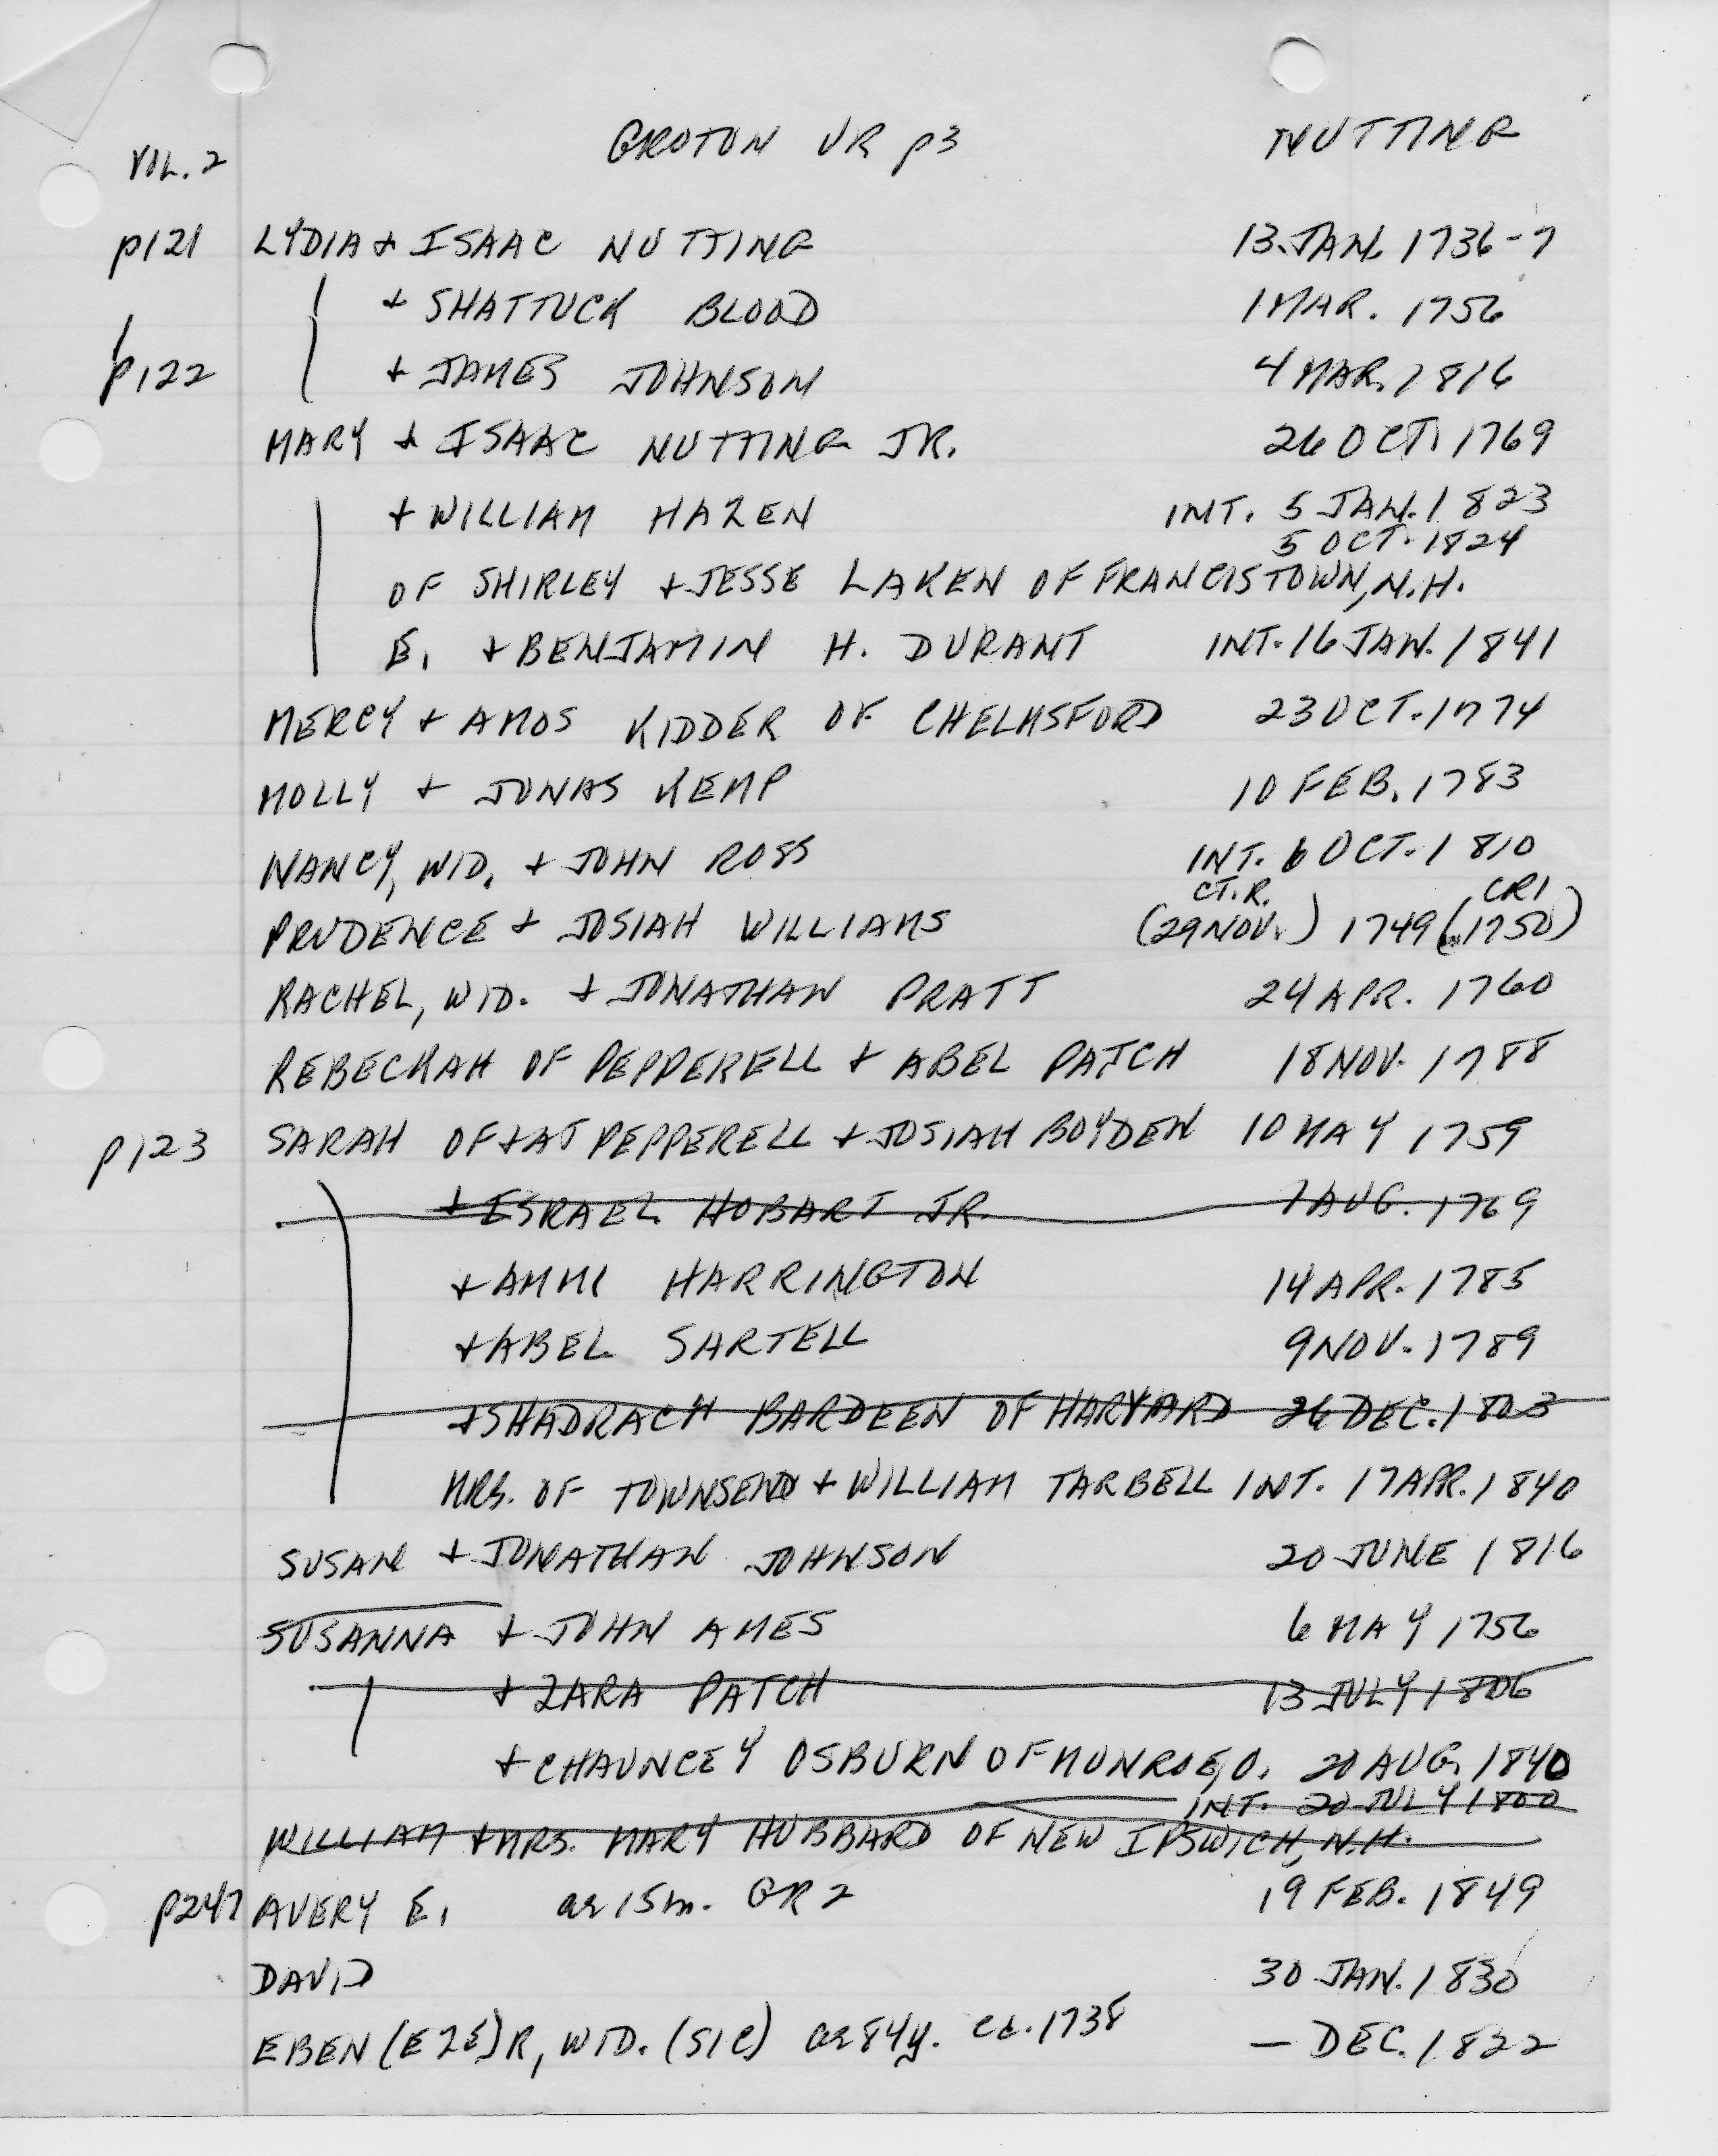 VOL. 2 GROTON VR p3 NUTTING
p121 LYDIA + ISAAC NUTTING 13 JAN. 1736-7
+ SHATTUCK BLOOD 1 MAR. 1756
p122 + JAMES JOHNSON 4 MAR. 1816
MARY + ISAAC NUTTING JR. 26 OCT. 1769
+ WILLIAM HAZEN INT. 5 JAN. 1823
5 OCT. 1824
OF SHIRLEY + JESSE LAKEN OF FRANCISTOWN, N.H.
E. + BENJAMIN H. DURANT INT. 16 JAN. 1841
MERCY + AMOS KIDDER OF CHELMSFORD 23 OCT. 1774
MOLLY + JONAS KEMP 10 FEB. 1783
NANCY, WID. + JOHN ROSS INT. 6 OCT. 1810
CT.R. CR1
PRUDENCE + JOSIAH WILLIAMS (29 NOV.) 1749 (1750)
RACHEL, WID. + JONATHAN PRATT 24 APR. 1760
REBECKAH OF PEPPERELL + ABEL PATCH 18 NOV. 1788
p123 SARAH OF + AT PEPPERELL + JOSIAH BOYDEN 10 MAY 1759
+ ISRAEL HOBART JR. 1 AUG. 1769
+ AMMI HARRINGTON 14 APR. 1785
+ ABEL SARTELL 9 NOV. 1789
+ SHADRACH BARDEEN OF HARVARD 26 DEC. 1803
MRS. OF TOWNSEND + WILLIAM TARBELL INT. 17 APR. 1840
SUSAN + JONATHAN JOHNSON 20 JUNE 1816
SUSANNA + JOHN AMES 6 MAY 1756
+ ZARA PATCH 13 JULY 1806
+ CHAUNCEY OSBURN OF MUNROE, O. 20 AUG. 1840
INT. 20 JULY 1800
WILLIAM + MRS. MARY HUBBARD OF NEW IPSWICH, N.H.
p247 AVERY E. ae 15m. GR2 19 FEB. 1849
DAVID 30 JAN. 1830
EBEN(EZE)R, WID. (SIC) ae 84y. ca. 1738 — DEC. 1822